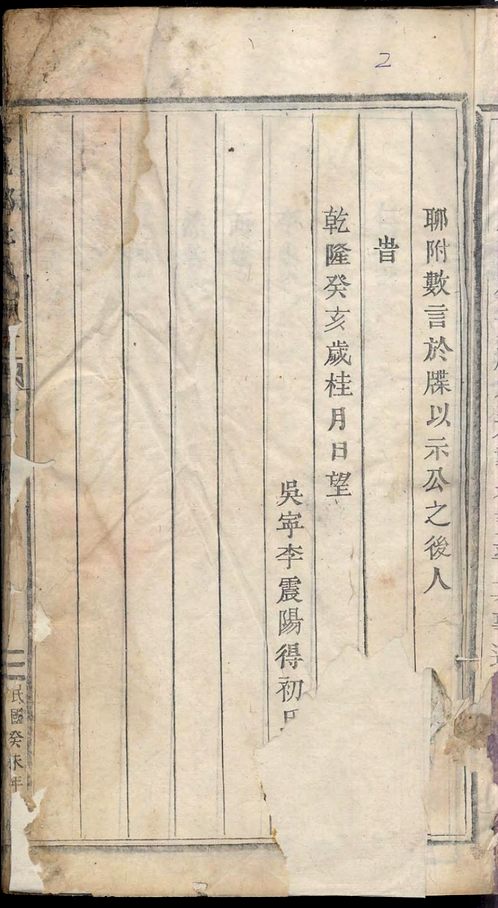 2
聊附數言於牒以示公之後人
旹
乾隆癸亥歲桂月日望
吳寧李震陽得初
民國癸未年